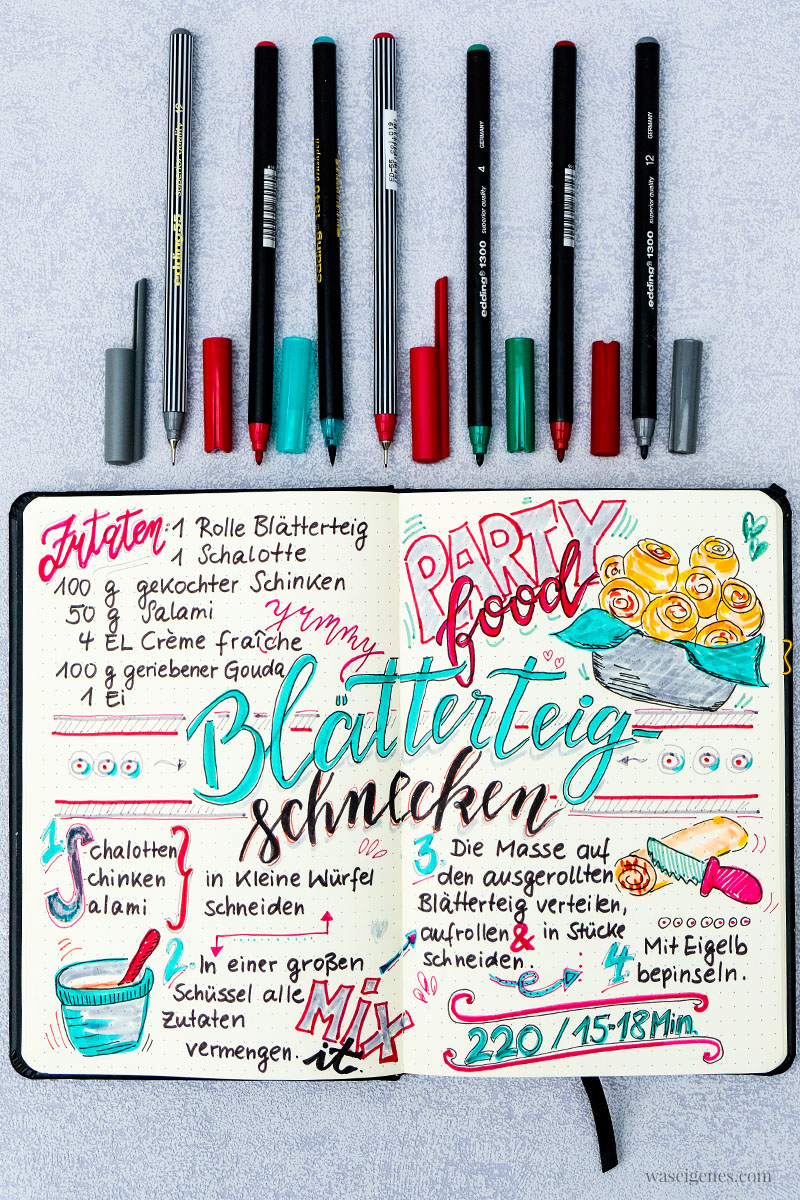 edding 55 superior quality 12
edding® 1340 brushpen
edding® 1300 superior quality 4 GERMANY
edding® 1300 superior quality 12 GERMANY
Zutaten: 1 Rolle Blätterteig
1 Schalotte
100 g gekochter Schinken
50 g Salami
4 EL Crème fraîche
100 g geriebener Gouda
1 Ei
yummy
PARTY
food
Blätterteig-
schnecken
1. Schalotten
Schinken
Salami
in Kleine Würfel
schneiden
2. In einer großen
Schüssel alle
Zutaten
vermengen.
Mix
it.
3. Die Masse auf
den ausgerollten
Blätterteig verteilen,
aufrollen & in Stücke
schneiden.
4. Mit Eigelb
bepinseln.
220 / 15-18 Min.
waseigenes.com